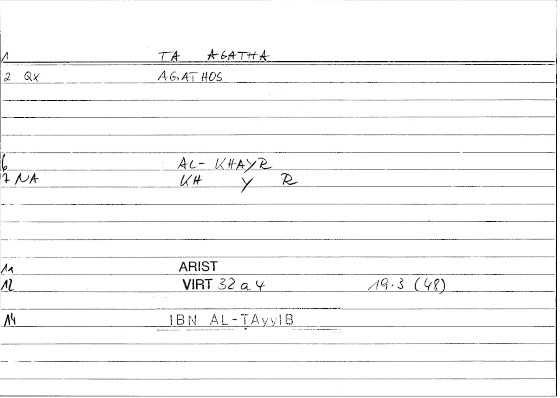 1 TA AGATHA
2 QX AGATHOS
6 AL-KHAYR
7 NA KH Y R
11 ARIST
12 VIRT 32 a 4 19.3 (48)
14 IBN AL-ṬAyyIB